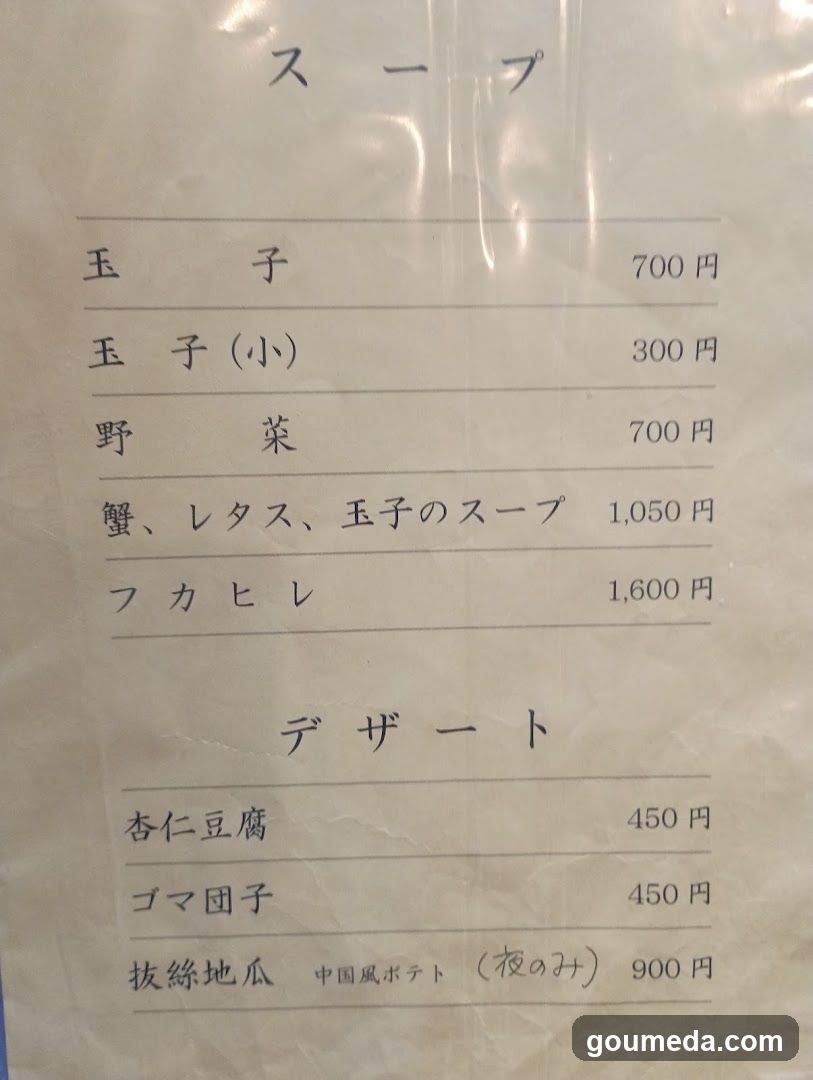 スープ
玉子 700円
玉子(小) 300円
野菜 700円
蟹、レタス、玉子のスープ 1,050円
フカヒレ 1,600円
デザート
杏仁豆腐 450円
ゴマ団子 450円
抜絲地瓜 中国風ポテト (夜のみ) 900円
goumeda.com